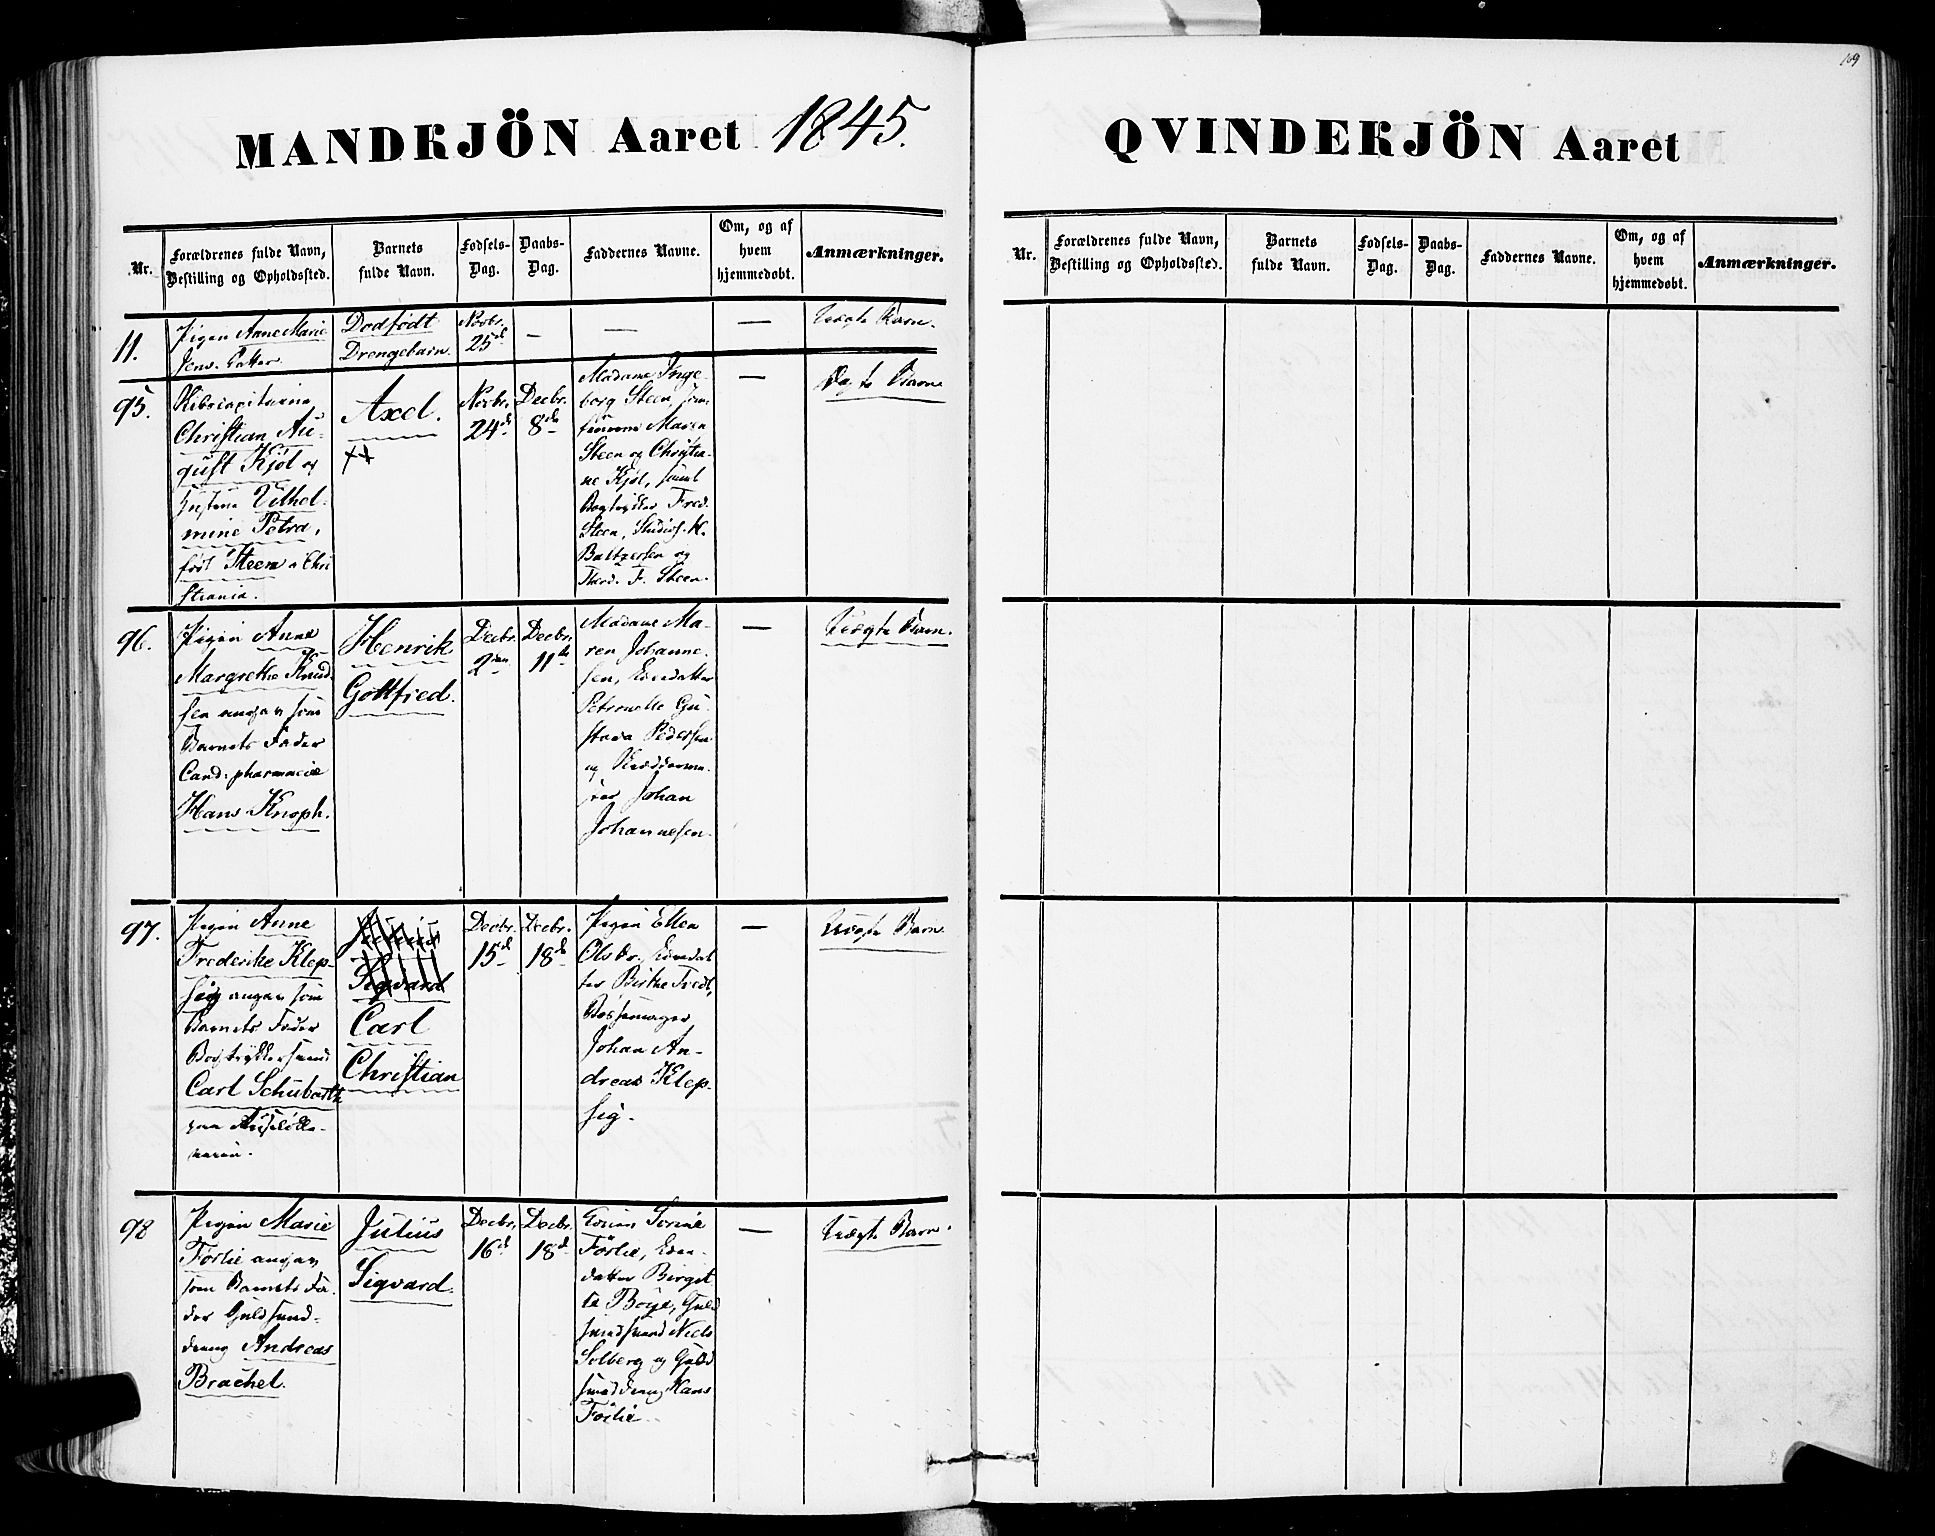 109
MANDKJÖN Aaret 1845.
Nr.
Forældrenes fulde Navn,
Bestilling og Opholdssted.
Barnets
fulde Navn.
Fødsels-
Dag.
Daabs-
Dag.
Faddernes Navne.
Om, og af
hvem
hjemmedøbt.
Anmærkninger.
11.
Pigen Anne Marie
Jens Datter
Dødfødt
Drengebarn.
Novbr.
25de
—
—
—
Uægte Barn.
95.
Christian Au-
gust Kjøl og
Hustru Vilhel-
mine Petra,
født Steen i Chri
stiania.
Axel.
Novbr.
24de
Decbr.
8de
Madame Inge-
borg Steen, Jom-
fruerne Maren
Steen og Christia-
ne Kjøl, samt
Bogtrykker Fred.
Steen, Studios. H.
Baltzersen og
F. Steen.
—
Ægte Barn
96.
Pigen Anne
Margrethe Knud-
sen angav som
Barnets Fader
Cand. pharmaciæ
Hans Knoph.
Henrik
Gottfried.
Decbr.
2den
Decbr.
11te
Madame Ma-
ren Johanne-
sen, Eliedatter
Petronelle Gu-
stava Pedersen
og
Johan
Johannesen.
—
Uægte Barn.
97.
Pigen Anne
Frederike Klep-
sig angav som
Barnets Fader
Bogtrykkersvend
Carl Schubarth
paa
Julius
Sigvard
Carl
Christian
Decbr.
15de
Decbr.
18de
Pigen Ellen
Olsdr.
Birthe Fredr.,
Bøssemager
Johan An-
dreas Klep-
sig.
—
Uægte Barn.
98
Pigen Marie
Førlie angav
som Barnets Fa-
der Guldsmed-
dreng Andreas
Brachel.
Julius
Sigvard.
Decbr.
16de
Decbr.
18de
Konen Sorine
Førlie,
datter Birgit
te Bøye, Guld
smedsvend Niels
Solberg og Guld
smeddreng Hans
Førlie.
—
Uægte Barn.
QVINDEKJÖN Aaret
Nr.
Forældrenes fulde Navn,
Bestilling og Opholdssted.
Barnets
fulde Navn.
Fødsels-
Dag.
Daabs-
Dag.
Faddernes Navne.
Om, og af
hvem
hjemmedøbt.
Anmærkninger.